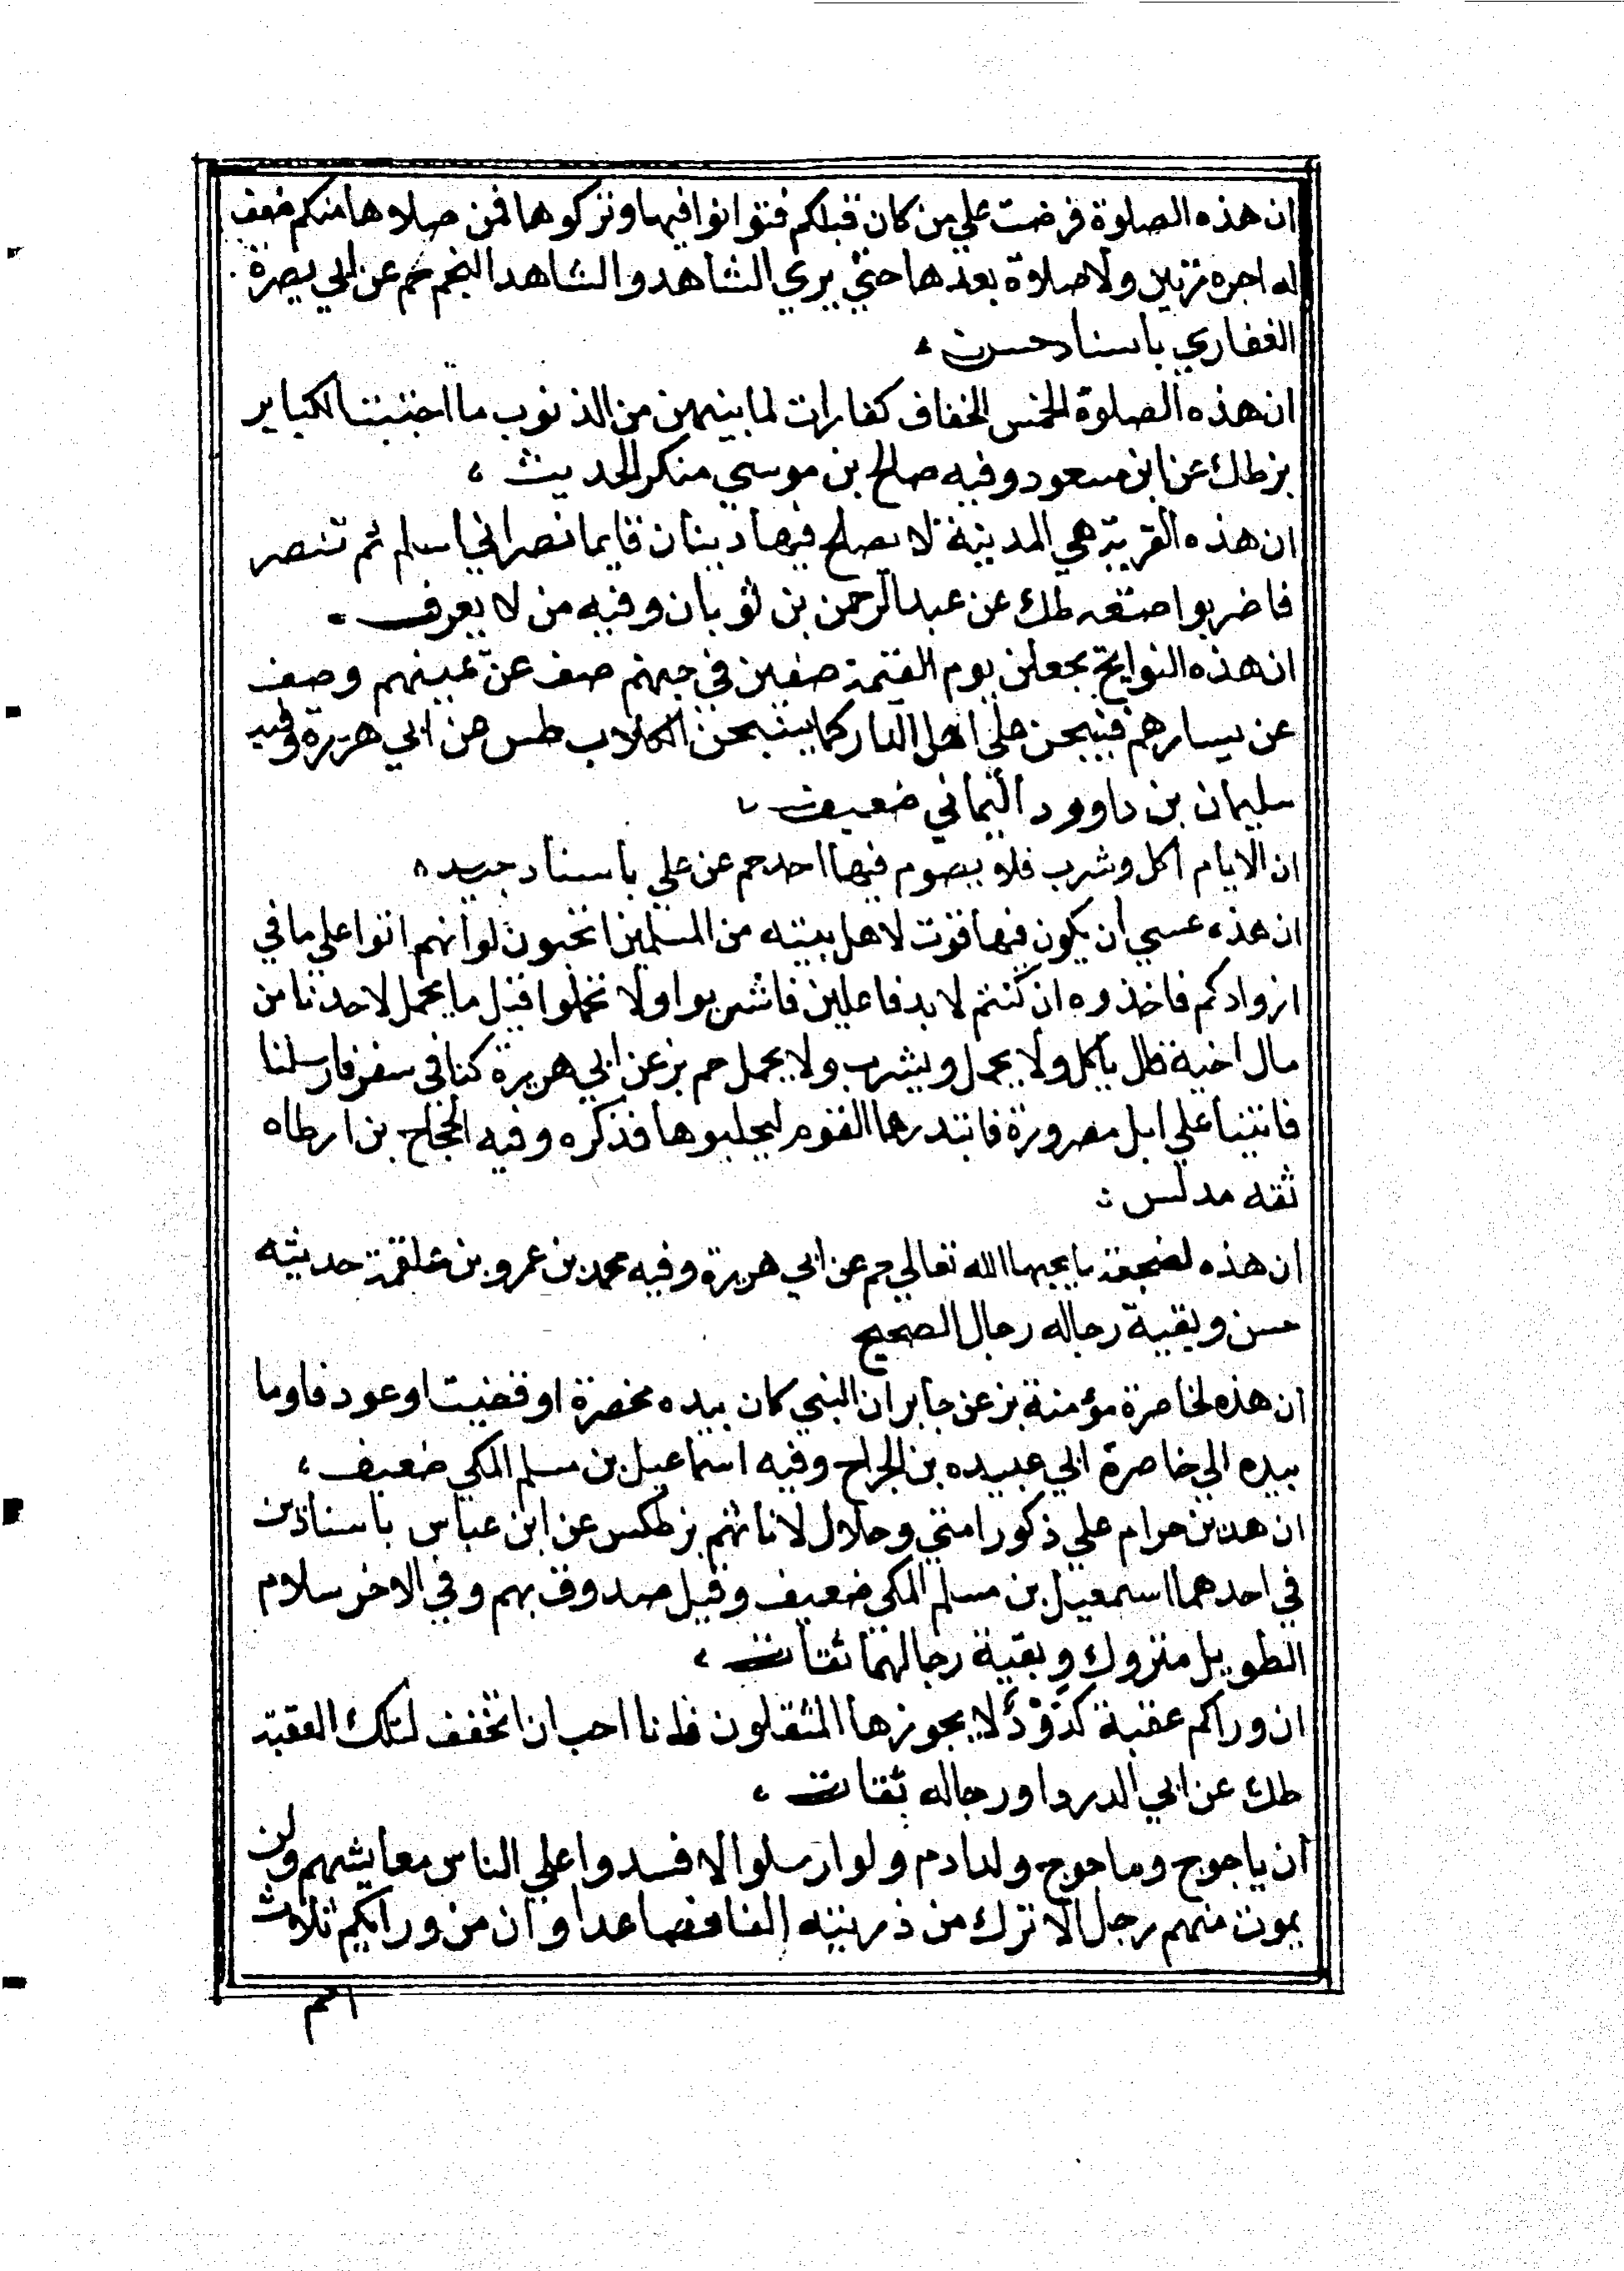 ان هذه الصلوة فرضت علي من كان قبلكم فتوانوا فيها وتركوها فمن صلاها منكم ضعف
له اجره مرتين ولا صلاة بعدها حتي يري الشاهد والشاهد النجم حم عن ابي بصرة
الغفاري باسناد حسن
ان هذه الصلوة الخمس الخفاف كفارات لما بينهن من الذنوب ما اجتنبت الكباير
بز طك عن ابن مسعود وفيه صالح بن موسي منكر الحديث
ان هذه القرية هي المدينة لا يصلح فيها دينان فايما نصراني اسلم ثم تنصر
فاضربوا عنقه طك عن عبد الرحمن بن ثوبان وفيه من لا يعرف
ان هذه النوايح يجعلن يوم القيمة صفين في جهنم صف عن يمينهم وصف
عن يسارهم فينبحن علي اهل النار كما ينبحن الكلاب طس عن ابي هريرة وفيه
سليمان بن داوود اليماني ضعيف
ان الايام اكل وشرب فلا يصوم فيها احد حم عن علي باسناد جيد
ان هذه عسي ان يكون فيها قوت لاهل بيته من المسلمين اتحبون لو انهم اتوا علي ما في
ازوادكم فاخذوه ان كنتم لا بد فاعلين فاشربوا ولا تحملوا قيل ما يحمل لاحدنا من
مال اخيه قال ياكل ولا يحمل ويشرب ولا يحمل حم بز عن ابي هريرة كنا في سفر فارسلنا
فاتينا علي ابل مصرورة فابتدرها القوم ليحلبوها فذكره وفيه الحجاج بن ارطاه
ثقه مدلس
ان هذه لضجعة ما يحبها الله تعالي حم عن ابي هريرة وفيه محمد بن عمرو بن علقمة حديثه
حسن وبقية رجاله رجال الصحيح
ان هذه لخاصرة مؤمنة بز عن جابر ان النبي كان بيده مخصرة او قضيب او عود فاوما
بيده الي خاصرة ابي عبيده بن الجراح وفيه اسماعيل بن مسلم المكي ضعيف
ان هذين حرام علي ذكور امتي وحلال لاناثهم بز طكس عن ابن عباس باسنادين
في احدهما اسمعيل بن مسلم المكي ضعيف وقيل صدوق يهم وفي الاخر سلام
الطويل متروك وبقية رجالهما ثقات
ان وراكم عقبة كؤدًا لا يجوزها المثقلون فانا احب ان اتخفف لتلك العقبة
طك عن ابي الدردا ورجاله ثقات
ان ياجوج وماجوج ولد ادم ولو ارسلوا لافسدوا علي الناس معايشهم ولن
يموت منهم رجل الا ترك من ذريته الفا فصاعدا وان من ورايكم ثلاث
امم